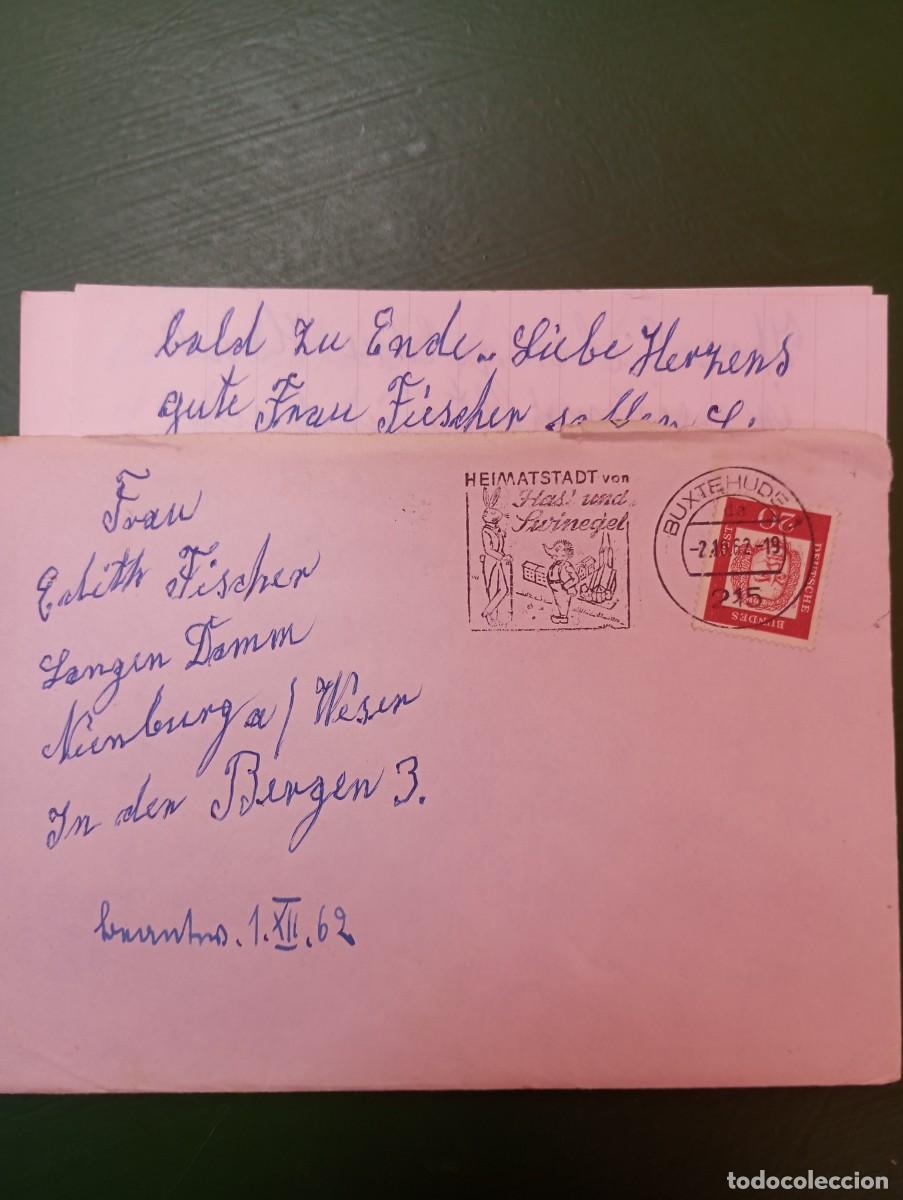 bald zu Ende. Liebe Herzens
gute Frau Fiescher sollen
HEIMATSTADT von
Has' und
Swinegel
BUXTEHUDE
-2.10.62-19
215
20
DEUTSCHE
BUNDES
Frau
Edith Fischer
Langen Damm
Nienburg a/Weser
In den Bergen 3.
beantw. 1.XII.62
todocoleccion